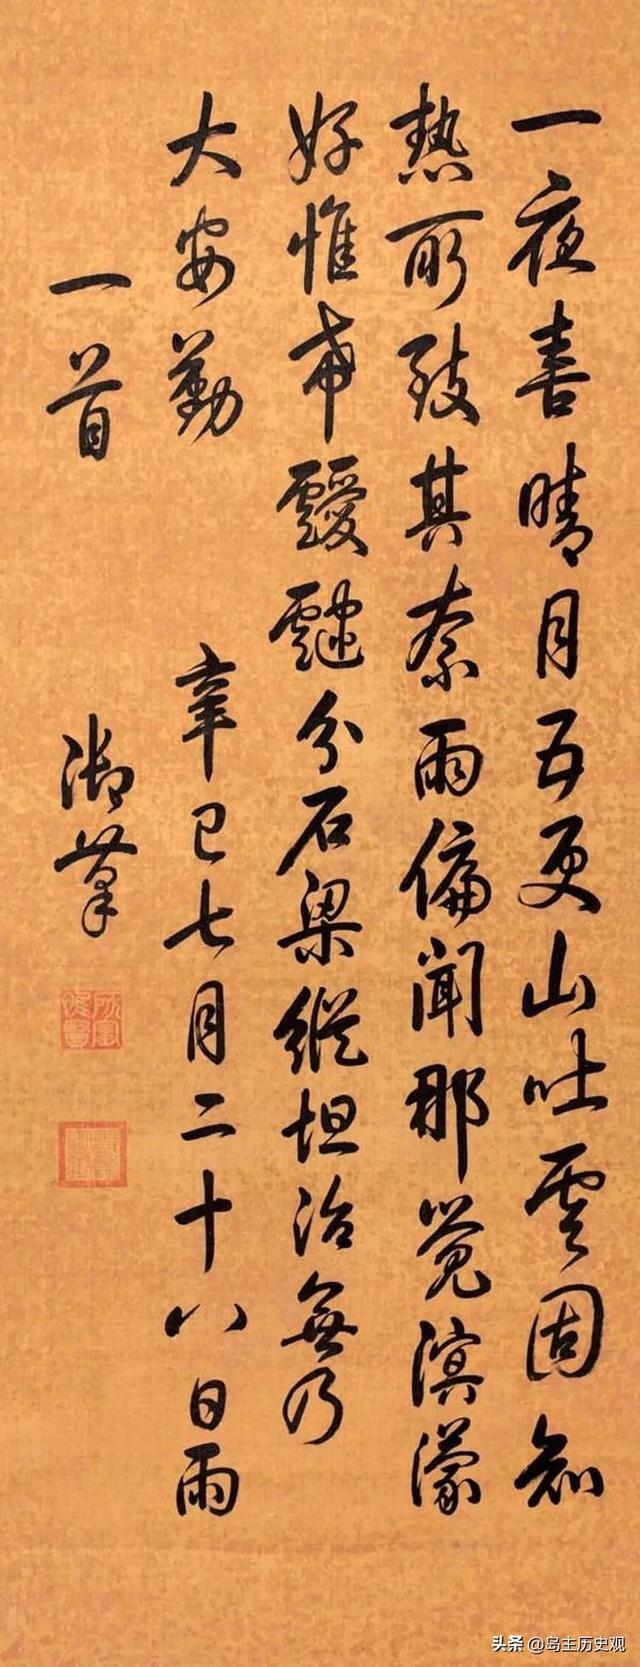 一夜喜晴月五更山吐雲固知
熱所致其奈雨偏聞那覺溟濛
好惟希靉靆分石梁縱坦治無乃
大安勤
辛巳七月二十八日雨
一首
御筆
头条 @岛主历史观